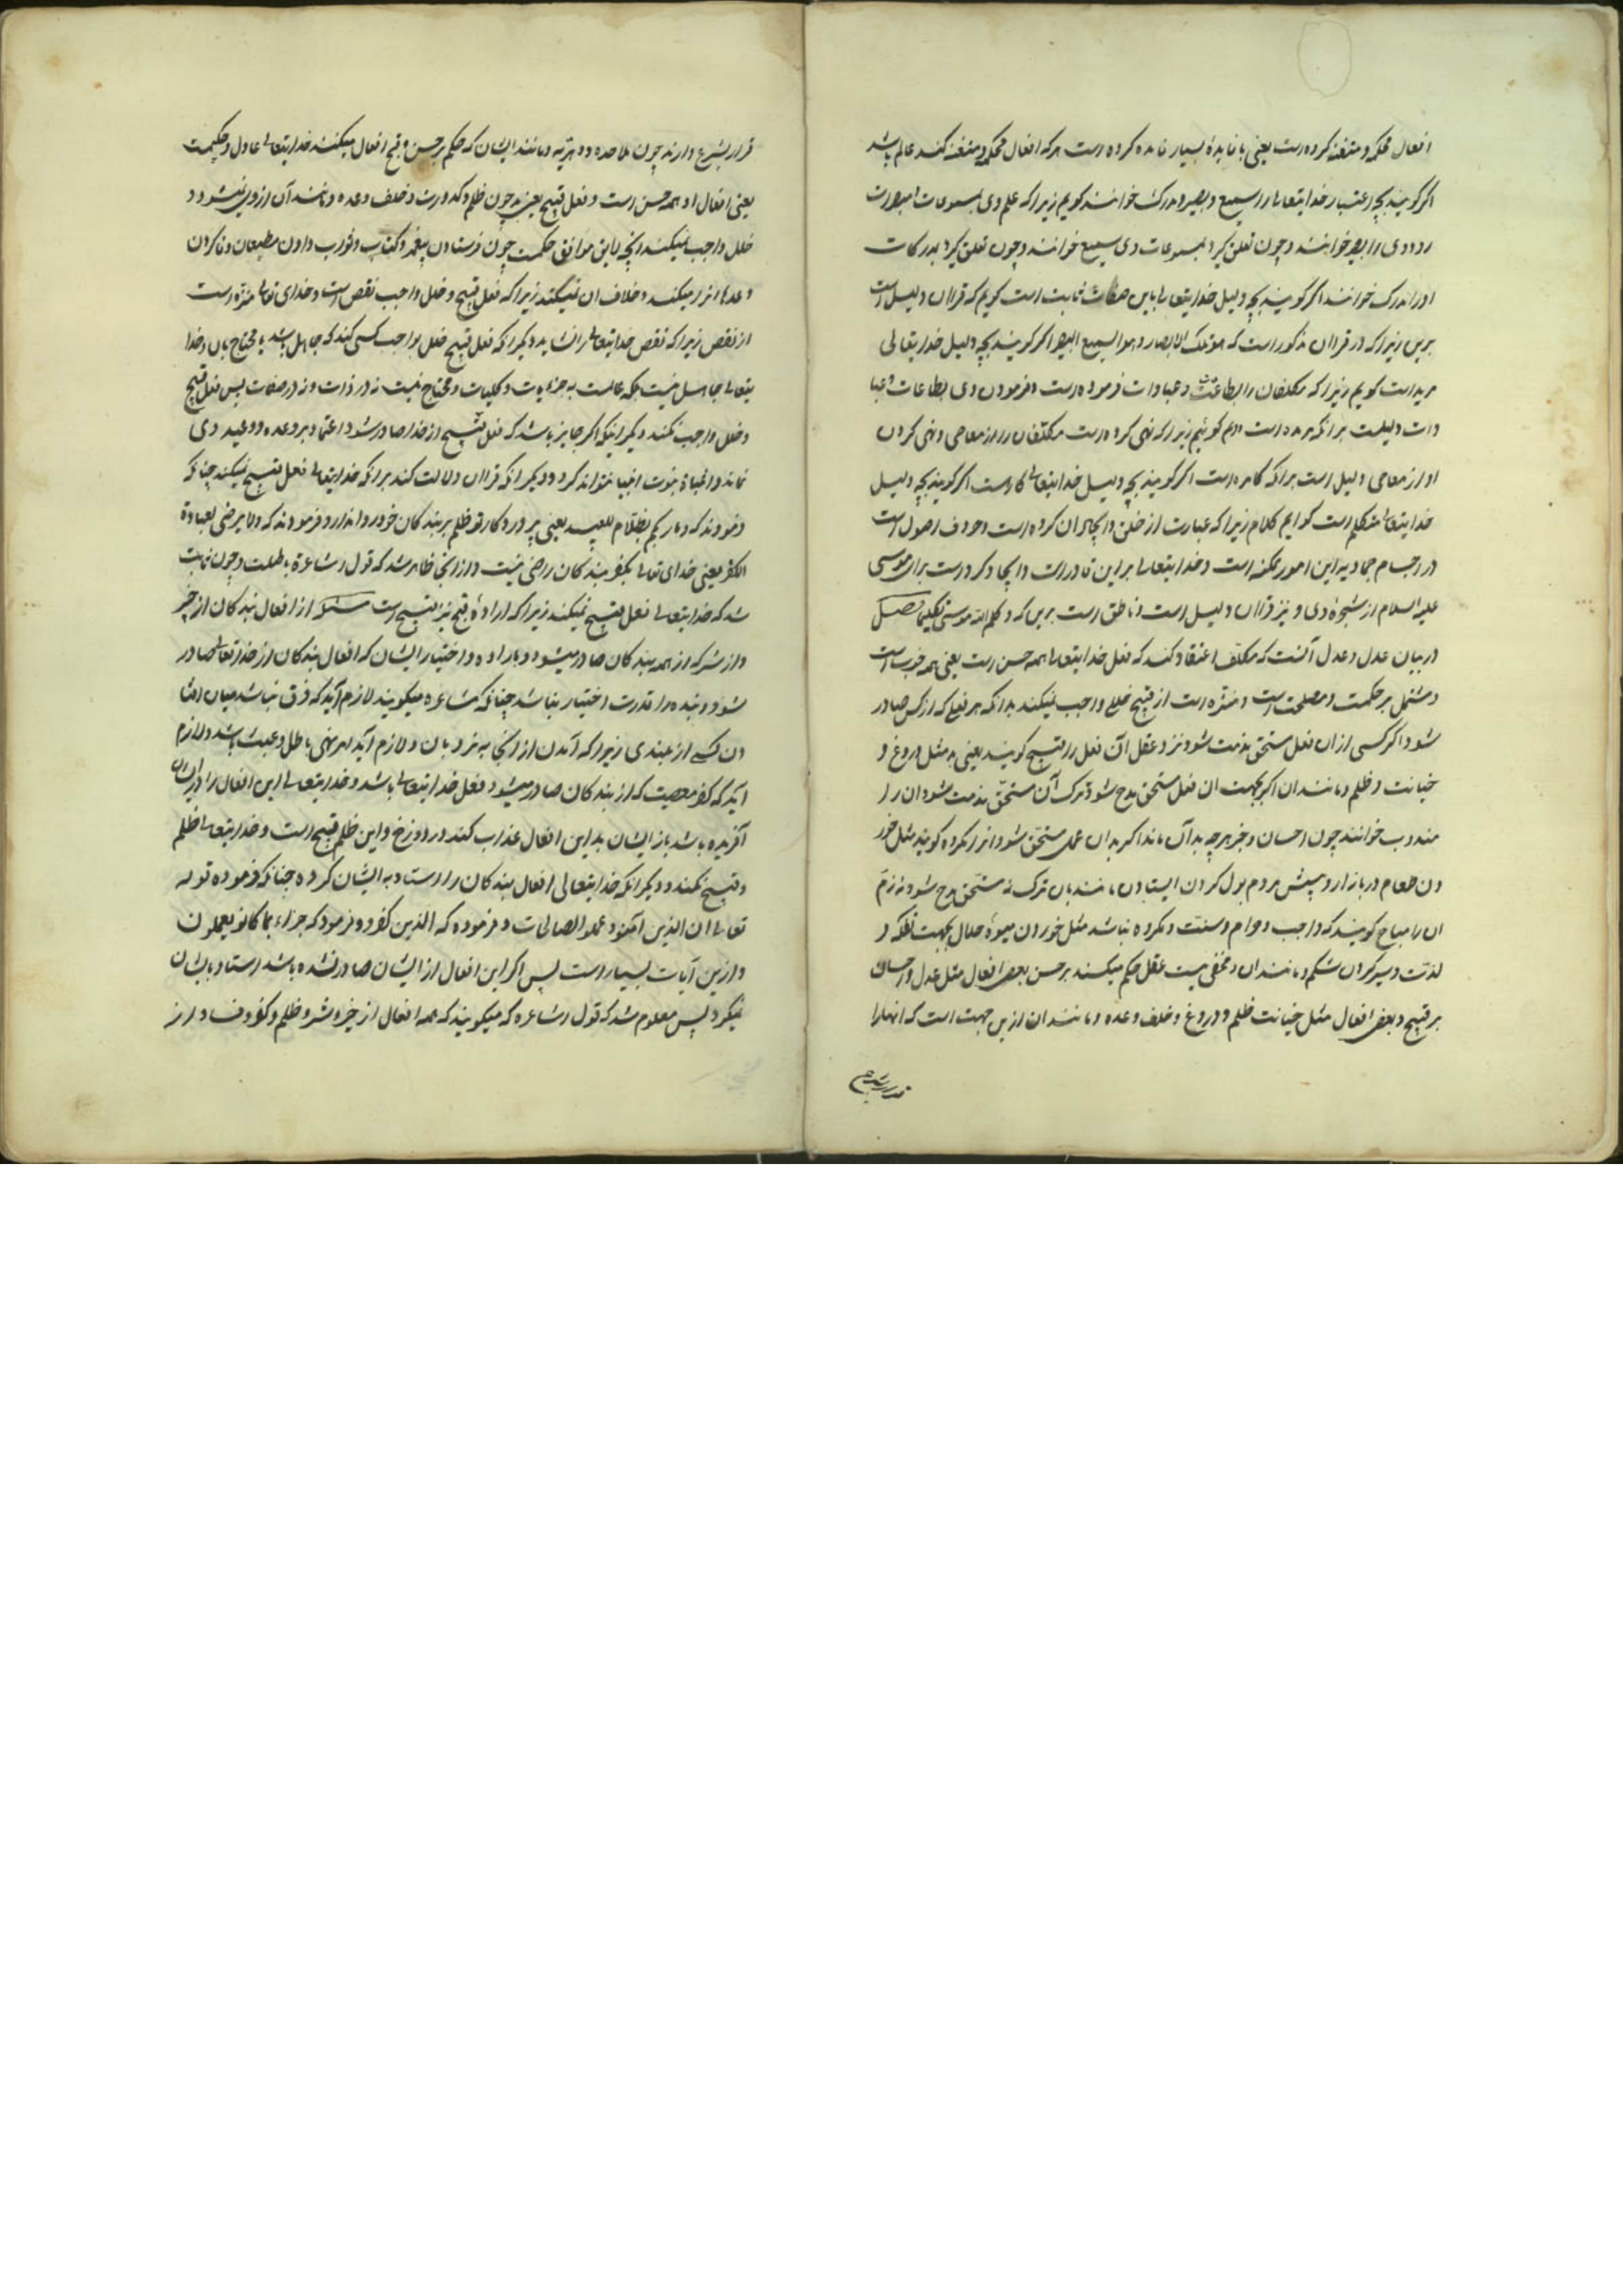 افعال محکمه و متقنه کرده است یعنی با فایدهٔ بسیار کرده است هر که افعال محکمه و متقنه کند عالم باشد
اکر کویند بچه اعتبار خدایتعالی را سمیع و بصیر و مدرک خوانند کویم زیرا که علم وی بمسموعات
وی را بصیر خوانند و چون تعلق کیرد بمسموعات وی سمیع خوانند و چون تعلق کیرد بمدرکات
اورا مدرک خوانند اکر کویند بچه دلیل خدایتعالی باین صفات ثابت است کویم که قراان دلیل است
برین زیرا که در قراان مذکور است که هو یدرک الابصار و هو السمیع البصیر اکر کویند بچه دلیل خدایتعالی
مرید است کویم زیرا که مکلفان را بطاعت و عبادات فرموده است و فرمودن وی بطاعات و عبا
دات دلیلست برانکه مرید است کوئیم زیرا که نهی کرده است مکلفان را از معاصی و نهی کردن
او از معاصی دلیل است برانکه کاره است اکر کویند بچه دلیل خدایتعالی کاره است اکر کویند بچه دلیل
خدایتعالی متکلم است کوایم کلام زیرا که عبارت از خلق و ایجاد ان کرده است و حروف اصول است
در اجسام جمادیه این امور ممکنه است و خدایتعالی براین قادر است و ایجاد کرده است برای موسی
علیه السلام از شجرهٔ وی و نیز قراان دلیل است و ناطق است برین که و کلم الله موسی تکلیما فصل
در بیان عدل و عدل آنست که مکلف اعتقاد کند که فعل خدایتعالی همه حسن است یعنی همه خوب است
و مشتمل بر حکمت و مصلحت است و منزه است از قبیح و خلل واجب نمیکند بدانکه هر فعلی که از کس صادر
شود اکر کسی ازان فعل مستحق مذمت شود نزد عقل آن فعل را قبیح کویند یعنی بد مثل دروغ و
خیانت و ظلم و مانند ان اکر بجهت ان فعل مستحق مدح شود و ترک آن مستحق مذمت شود ان را
مندوب خوانند چون احسان و خیر هرچه بدآن ماند اکر بدان عمل مستحق شود انرا مکروه کویند مثل خور
دن طعام در بازار و پیش مردم بول کردن ایستادن مانند بان ترک نه مستحق مدح شود و نه ذم
ان را مباح کویند که واجب و حرام و سنت و مکروه نباشد مثل خوردن میوهٔ حلال بجهت تفکه و
لذت و سیر کردن شکم و مانند ان و مخفی نیست عقل حکم میکند بر حسن بعض افعال مثل عدل و احسان
بر قبیح و بعض افعال مثل خیانت ظلم و دروغ و خلف وعده و مانند ان ازین جهت است که انهارا
قرار بشرع دارند چون ملاحده و دهریه و مانند ایشان که حکم بر حسن و قبح افعال میکنند خدایتعالی عادل و حکیمست
یعنی افعال او همه حسن است و فعل قبیح یعنی بد چون ظلم و کدورت و خلف وعده و مانند آن از وی نمیشود و
خلل واجب نمیکند انچه لایق موافق حکمت چون فرستادن پیغمبر و کتاب و ثواب دادن مطیعان وفا کردن
وعدها انرا میکند و خلاف ان نمیکند زیرا که فعل قبیح و خلل واجب نقص است و خدای تعالی منزه است
از نقص زیرا که نقص خدایتعالی را نشاید دیکر انکه فعل قبیح خلل بواجب کسی کند که جاهل باشد یا محتاج بان و خدا
یتعالی جاهل نیست بلکه عالمست بجزئیات و کلیات و محتاج نیست نه در ذات و نه در صفات پس فعل قبیح
و خلل واجب نکند دیکر اینکه اکر جایز باشد که فعل قبیح از خدا صادر شود اعتماد بر وعده و وعید وی
نماند و اثبات نبوت انبیا نتواند کرد و دیکر انکه قراان دلالت کند برانکه خدایتعالی فعل قبیح نمیکند چنانکه
فرموده که و ما ربک بظلام للعبید یعنی پروردکار تو ظلم بر بندکان خود روا ندارد و فرموده که ولا یرضی لعباده
الکفر یعنی خدای تعالی بکفر بندکان راضی نیست و از انجا ظاهر شد که قول اشاعره باطلست و چون ثابت
شد که خدایتعالی فعل قبیح نمیکند زیرا که ارادهٔ قبیح نیز قبیح است مسئله از افعال بندکان از خیر
و از شر که از همه بندکان صادر میشود و باراده و اختیار ایشان که افعال بندکان از خدایتعالی صادر
شود و بنده را قدرت اختیار نباشد چنانکه اشاعره میکویند لازم آید که فرق نباشد میان افتا
دن کسی از بلندی زیرا که آمدن از انجا به نردبان و لازم آید امر و نهی باطل و عبث باشد و لازم
آید که کفر معصیت که از بندکان صادر میشود فعل خدایتعالی باشد و خدایتعالی این افعال را در ایشان
آفریده باشد باز ایشان بداین افعال عذاب کند در دوزخ و این ظلم قبیح است و خدایتعالی ظلم
و قبیح نکند و دیکر انکه خدایتعالی افعال بندکان را اسناد به ایشان کرده چنانکه فرموده قوله
تعالی ان الذین آمنوا و عملوا الصالحات و فرموده که الذین کفروا و فرمود که جزاء بما کانوا یعملون
و ازین آیات بسیار است پس اکر این افعال از ایشان صادر نشده باشد اسناد بایشان
نمیکرد پس معلوم شد که قول اشاعره که میکویند که همه افعال از خیر و شر و ظلم و کفر و فساد از
قرار بشرع